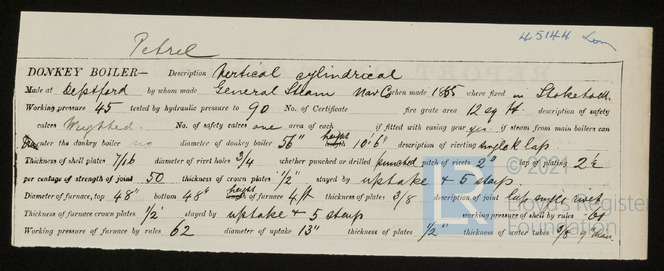 45144 Lon
Petrel
DONKEY BOILER— Description Vertical cylindrical
Made at Deptford by whom made General Steam Nav Co when made 1885 where fixed in Stokehold.
Working pressure 45 tested by hydraulic pressure to 90 No. of Certificate fire grate area 12 sq ft. description of safety
valves Weighted. No. of safety valves one area of each if fitted with easing gear yes if steam from main boilers can
enter the donkey boiler no diameter of donkey boiler 56" height 10'6" description of riveting single lap
Thickness of shell plates 7/16 diameter of rivet holes 3/4 whether punched or drilled punched pitch of rivets 2" lap of plating 2 1/2
per centage of strength of joint 50 thickness of crown plates 1/2" stayed by uptake + 5 stays. © 2021
Diameter of furnace, top 48" bottom 48" height of furnace 4 ft thickness of plates 3/8 description of joint lap single rivet Lloyd's Register
Thickness of furnace crown plates 1/2 stayed by uptake + 5 stays working pressure of shell by rules Foundation
Working pressure of furnace by rules 62 diameter of uptake 13" thickness of plates 1/2" thickness of water tubes 3/8